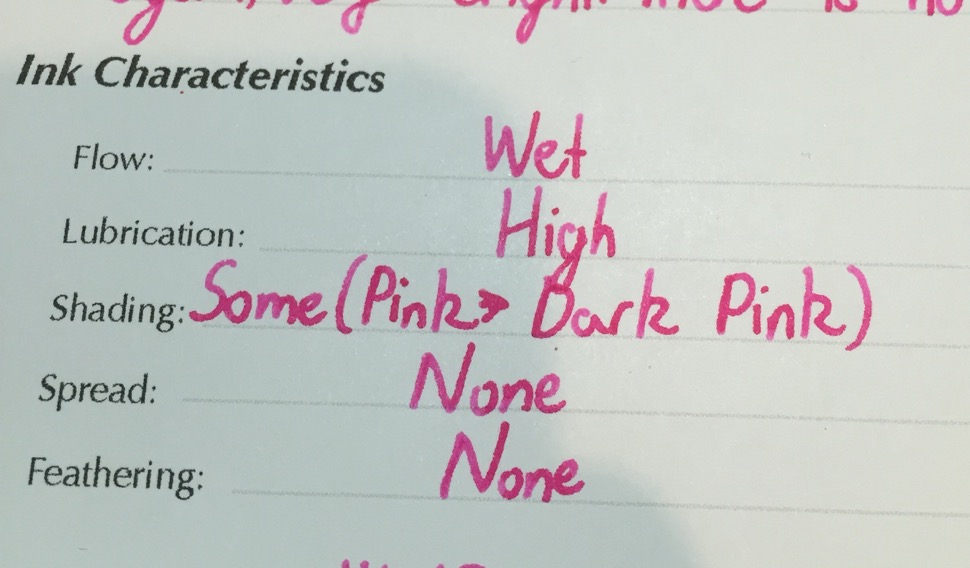 Ink Characteristics
Flow: Wet
Lubrication: High
Shading: Some (Pink > Dark Pink)
Spread: None
Feathering: None